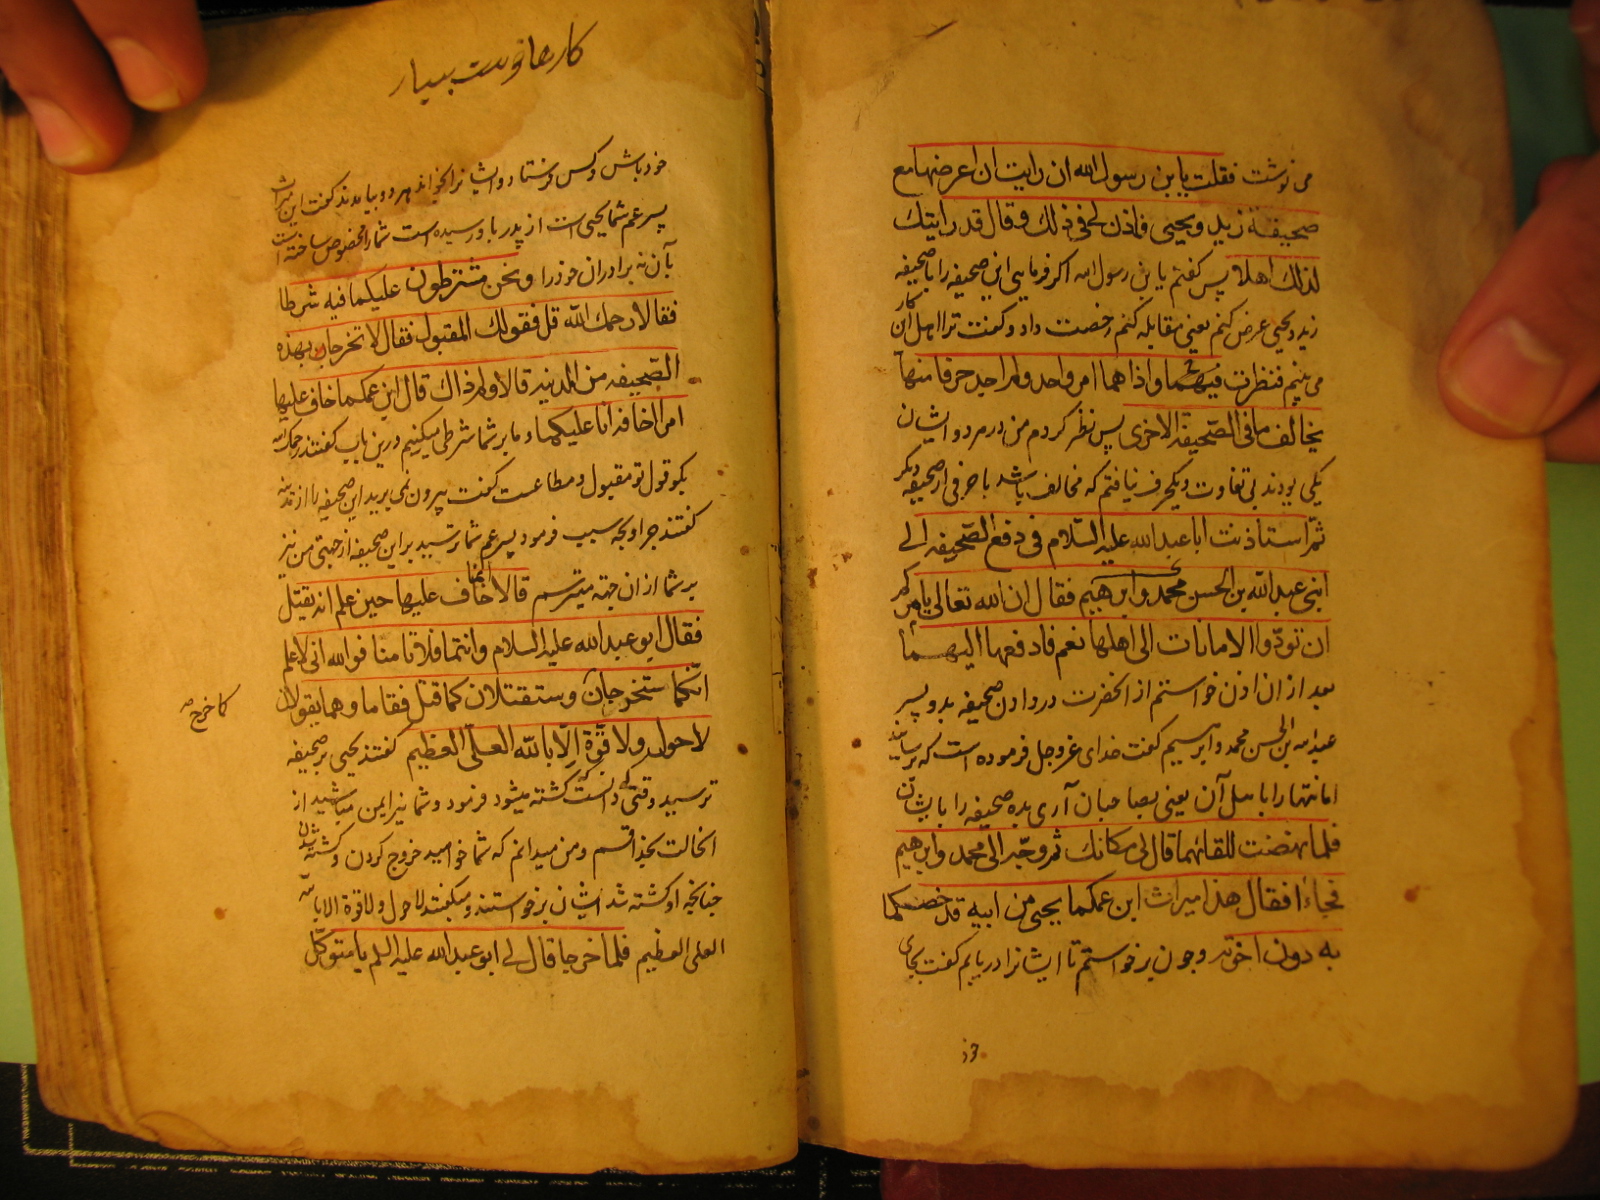 می نوشت فقلت یا بن رسول الله ان رایت ان اعرضها مع
صحیفة زید ویحیی فاذن لی فی ذلک وقال قد رایتک
لذلک اهلا پس کفتم یا بن رسول الله اکر فرمایی این صحیفه را با صحیفه
زید ویحیی عرض کنم یعنی مقابله کنم رخصت داد وکفت ترا اهل این کار
می بینم فنظرت فیهما واذا هما امر واحد ولم اجد حرفا منها
یخالف ما فی الصّحیفة الاخری پس نظر کردم من در هر دو ایشان
یکی بودند بی تفاوت ویکحرف نیافتم که مخالف باشد با حرفی از صحیفه دیکر
ثمّ استاذنت ابا عبد الله علیه السّلام فی دفع الصّحیفه الی
ابنی عبد الله بن الحسن محمد وابرهیم فقال ان الله تعالی یامرکم
ان تودّوا الامانات الی اهلها نعم فادفعها الیهما
بعد از ان اذن خواستم از انحضرت در دادن صحیفه بدو پسر
عبد الله بن الحسن محمد وابرهیم کفت خدای عزوجل فرموده است که برسانید
امانتها را باهل آن یعنی بصاحبان آری بده صحیفه را بایشان
فلما نهضت للقائهما قال لی مکانک ثم وجّه الی محمد وابرهیم
فجاءا فقال هذا میراث ابن عمکما یحیی من ابیه قد خصکما
به دون اخوته وچون برخواستم تا ایشانرا دریابم کفت بجای
خود
کارها اوست بسیار
خود باش وکس فرستاد وایشانرا بخواند هر دو بیامدند کفت این میراث
پسر عم شما یحیی است از پدر باو رسیده است شما را مخصوص ساخته است
بآن نه برادران خود را ونحن مشترطون علیکما فیه شرطا
فقالا رحمک الله قل فقولک المقبول فقال لا تخرجا بهذه
الصّحیفه من المدینه قالا ولم ذاک قال ان ابن عمکما خاف علیها
امرا اخافه انا علیکما وما بر شما شرطی میکنیم درین باب کفتند رحمک الله
بکو قول تو مقبول ومطاعست کفت بیرون نمی برید این صحیفه را از مدینه
کفتند چرا وبچه سبب فرمود پسر عم شما ترسید بر این صحیفه از جهتی من نیز
بر شما از ان جهة میترسم قالا انما خاف علیها حین علم انه یقتل
فقال ابو عبد الله علیه السلام وانتما فلا تامنا فو الله انی لاعلم
انّکما ستخرجان وستقتلان کما قتل فقاما وهما یقولان
کما خرج صه
لا حول ولا قوّة الّا بالله العلّی العظیم کفتند یحیی بر صحیفه
ترسید وقتی که دانست کشته میشود فرمود وشما نیز ایمن مباشید از
انحالت بخدا قسم ومن میدانم که شما خواهید خروج کردن وکشته شدن
چنانچه او کشته شد ایشان برخواستند ومیکفتند لا حول ولا قوة الا بالله
العلی العظیم فلما خرجا قال لی ابو عبد الله علیه السلم یا متوکّل